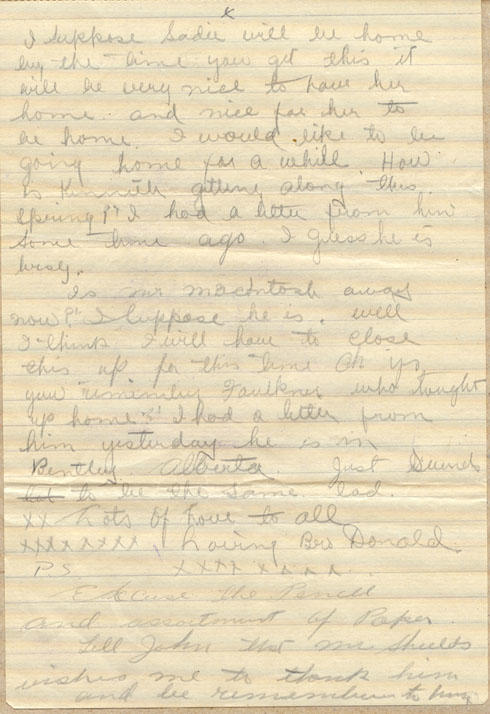 x
I suppose Sadie will be home
by the time you get this it
will be very nice to have her
home. and nice for her to
be home. I would like to be
going home for a while. How
is Kenneth getting along this
spring?" I had a letter from him
some time ago. I guess he is
busy.
Is Mr Macintosh away
now?" I suppose he is. well
I think I will have to close
this up for this time Oh yes
you remember Faulkner who tought
up home?" I had a letter from
him yesterday he is in
Bentley Alberta. Just
to be the same lad.
xx Lots of Love to all
xxxxxxxx Loving Bro Donald.
P.S xxxx xxxx
Excuse the Pencil
and assortment of Paper.
Tell John that Mr Shields
wishes me to thank him
and be remembered to him